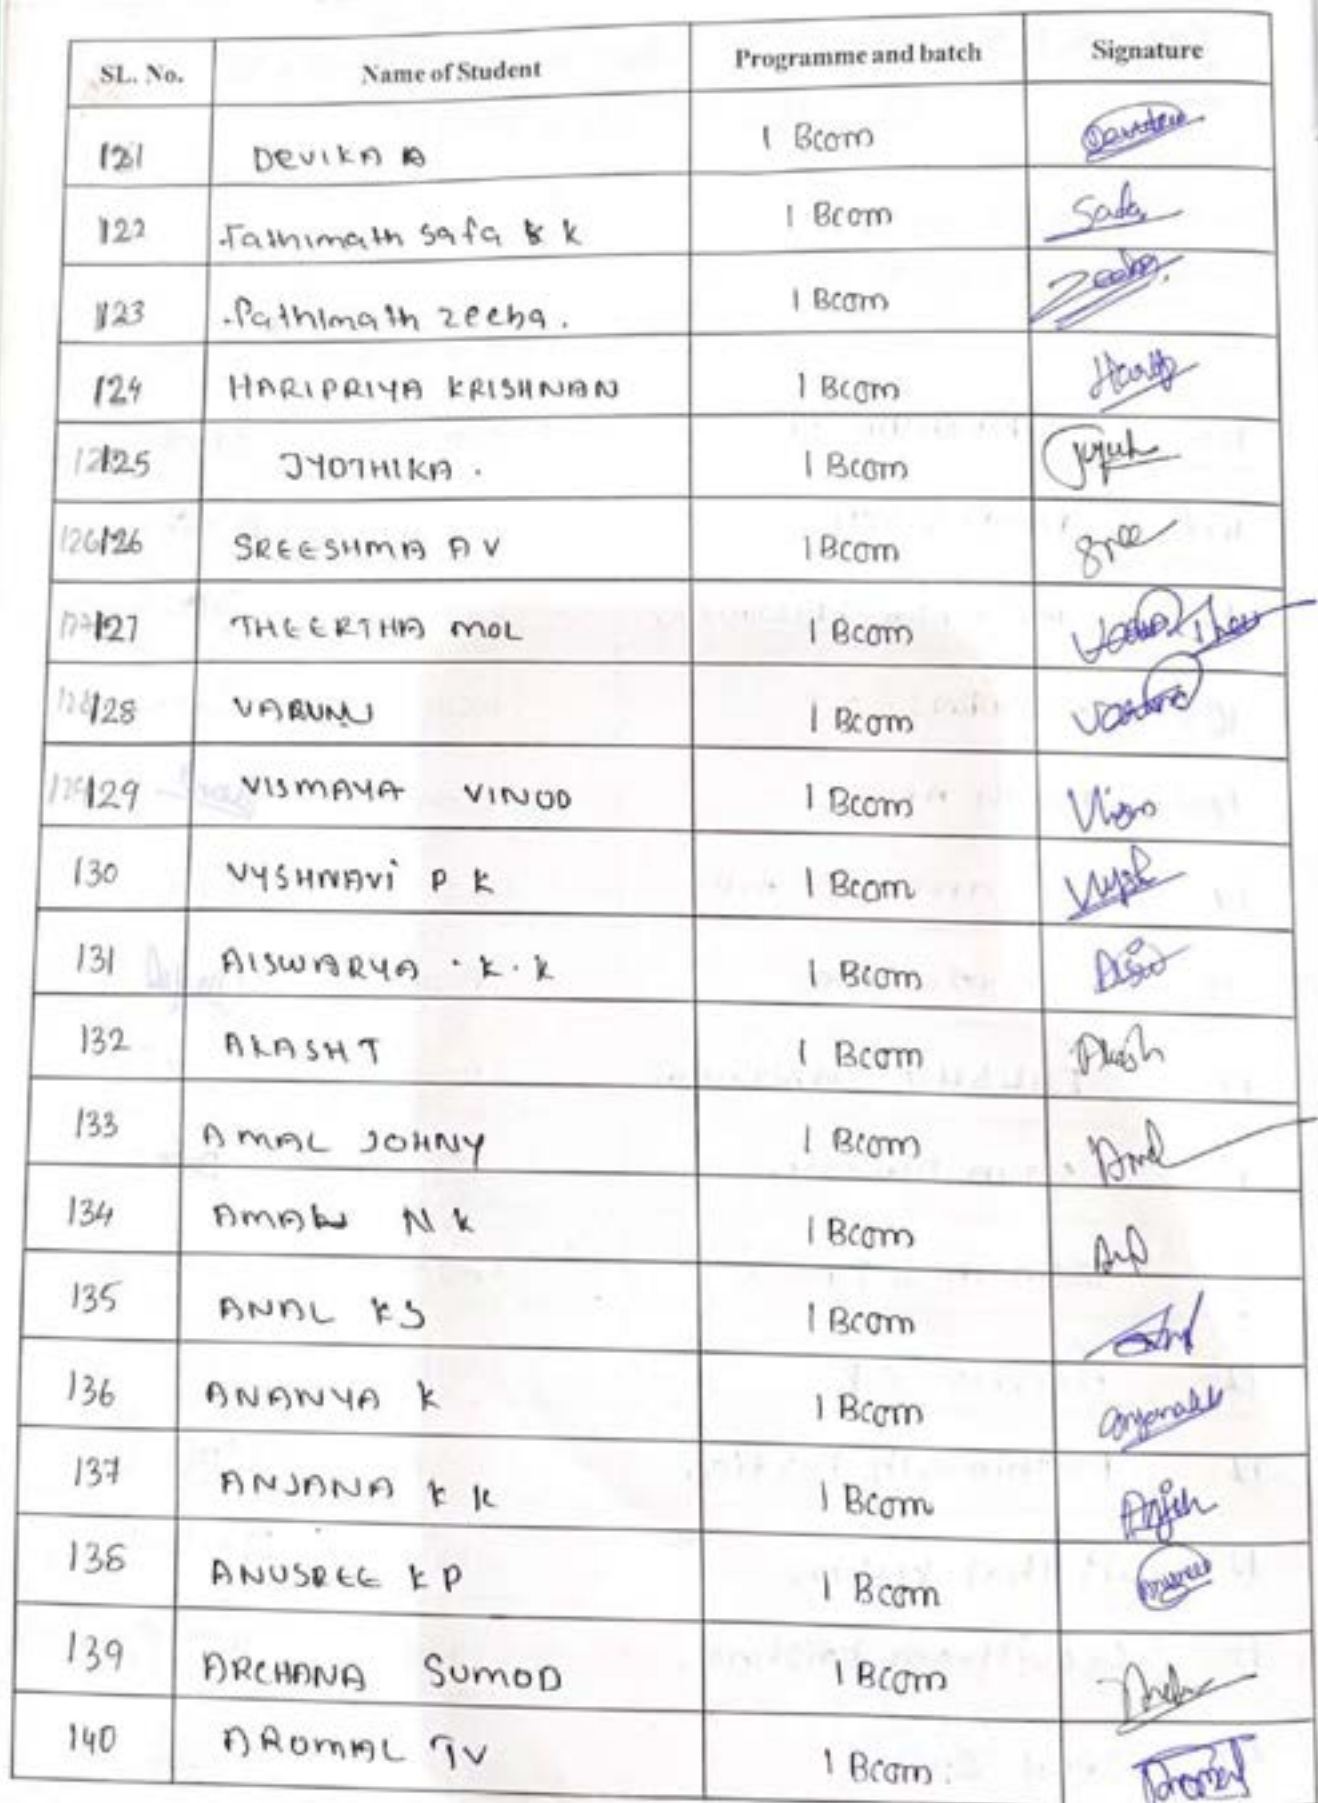 SL. No. Name of Student Programme and batch Signature
121 DEVIKA A 1 Bcom
122 Fathimath Safa K K 1 Bcom Safa
123 Fathimath Zeeba. 1 Bcom Zeeba
124 HARIPRIYA KRISHNAN 1 Bcom
125 JYOTHIKA . 1 Bcom
126 SREESHMA A V 1 Bcom Sree
127 THEERTHA MOL 1 Bcom
128 VARUNI 1 Bcom
129 VISMAYA VINOD 1 Bcom
130 VYSHNAVi P K 1 Bcom
131 AISWARYA . K . K 1 Bcom
132 AKASH T 1 Bcom Akash
133 AMAL JOHNY 1 Bcom Amal
134 AMAL N K 1 Bcom
135 ANAL KS 1 Bcom
136 ANANYA K 1 Bcom
137 ANJANA K K 1 Bcom
138 ANUSREE K P 1 Bcom
139 ARCHANA SUMOD 1 Bcom
140 AROMAL TV 1 Bcom Aromal